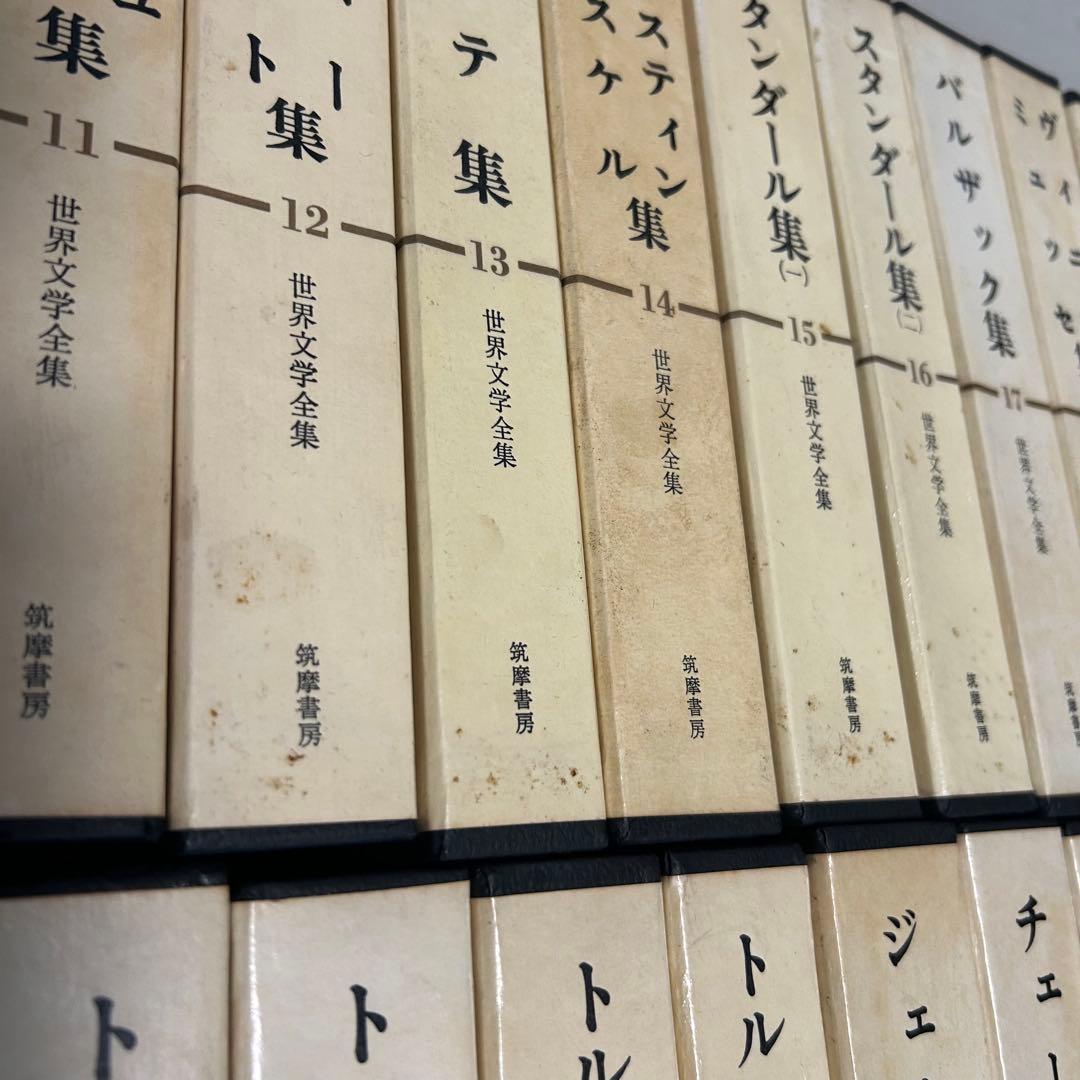 集
11
世界文学全集
筑摩書房
ト
ー
集
12
世界文学全集
筑摩書房
テ集
13
世界文学全集
筑摩書房
スティン
スケル
集
14
世界文学全集
筑摩書房
タンダール集(一)
15
世界文学全集
筑摩書房
スタンダール集(二)
16
世界文学全集
筑摩書房
バルザック集
17
世界文学全集
筑摩書房
ヴィニ
ミュッセ
ト
ト
トル
トル
ジェ
チェー